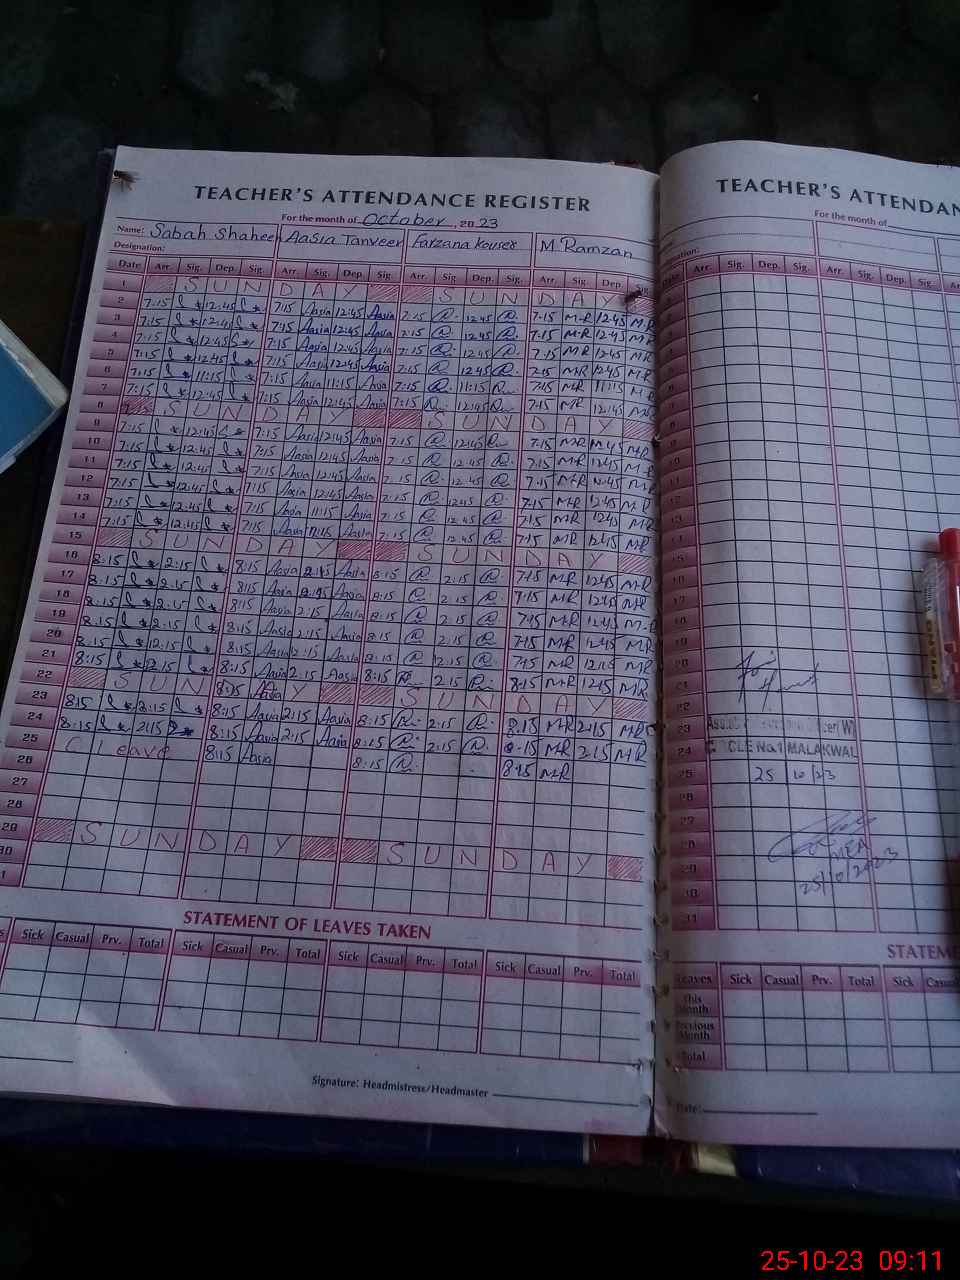 TEACHER'S ATTENDANCE REGISTER
For the month of October, 2023
Name: Sabah Shaheen Aasia Tanveer Farzana Kouser M. Ramzan
Designation:
Date Arr. Sig. Dep. Sig. Arr. Sig. Dep. Sig. Arr. Sig. Dep. Sig. Arr. Sig. Dep. Sig.
1 SUNDAY SUNDAY
2 7:15 12:45 7:15 Aasia 12:45 Aasia 7:15 12:45 7-15 M-R 1245 M-R
3 7:15 12:45 7:15 Aasia 12:45 Aasia 7:15 12:45 7-15 M-R 1245 MR
4 7:15 12:45 7:15 Aasia 12:45 Aasia 7:15 12:45 7-15 MR 1245 MR
5 7:15 12:45 7:15 Aasia 12:45 Aasia 7:15 12:45 MR 1245 MR
6 7:15 11:15 7:15 Aasia 11:15 Aasia 7:15 11:15 MR 11:15 MR
7 7:15 12:45 7:15 Aasia 12:45 Aasia 7:15 12:45 7-15 MR MR
8 SUNDAY SUNDAY
9 7:15 12:45 7:15 Aasia 12:45 Aasia 7:15 12:45 7-15 MR 12.45 MR
10 7:15 12:45 7:15 Aasia 12:45 Aasia 7:15 12:45 7-15 MR 1245 MR
11 7:15 12:45 7:15 Aasia 12:45 Aasia 7:15 12:45 7-15 MR 1245 MR
12 7:15 12:45 7:15 Aasia 12:45 Aasia 7:15 12:45 7-15 MR 1245 MR
13 7:15 7:15 Aasia 11:15 Aasia 7:15 7-15 MR MR
14 7:15 12:45 7:15 Aasia Aasia 7:15 12:45 7-15 MR 1245 MR
15 SUNDAY SUNDAY
16 8:15 2:15 8:15 Aasia 2:15 Aasia 8:15 2:15 7-15 MR 1245 MR
17 8:15 8:15 Aasia 2:15 Aasia 8:15 2:15 7-15 MR 1245 MR
18 8:15 8:15 Aasia 2:15 Aasia 8:15 2:15 7-15 MR 1245 M-R
19 8:15 2:15 8:15 Aasia 2:15 Aasia 8:15 2:15 7-15 MR 1245 MR
20 8:15 2:15 8:15 Aasia 2:15 Aasia 8:15 7-15 MR MR
21 8:15 2:15 8:15 Aasia 2:15 Aasia 8:15 2:15 8-15 MR MR
22 SUN 8:15 Aasia Y SUNDAY
23 815 2:15 8:15 Aasia 2:15 Aasia 8:15 2:15 8.15 MR 2.15 MR
24 8:15 2:15 8:15 Aasia 2:15 Aasia 8:15 2:15 8-15 MR MR
25 C Leave 8:15 Aasia 8:15 8:15 MR
26
27
28
29 SUNDAY SUNDAY
30
1
STATEMENT OF LEAVES TAKEN
Sick Casual Prv. Total Sick Casual Prv. Total Sick Casual Prv. Total Sick Casual Prv. Total
Signature: Headmistress/Headmaster
TEACHER'S ATTENDAN
For the month of
Arr. Sig. Dep. Sig. Arr. Sig.
20
21
22
23
24 CIRCLE No.1 MALAKWAL
25 25 10/23
26
27
28
29 25/10/2023
30
31
STATEME
Leaves Sick Casual Prv. Total Sick Casu
This Month
Previous Month
Total
Date:
25-10-23 09:11